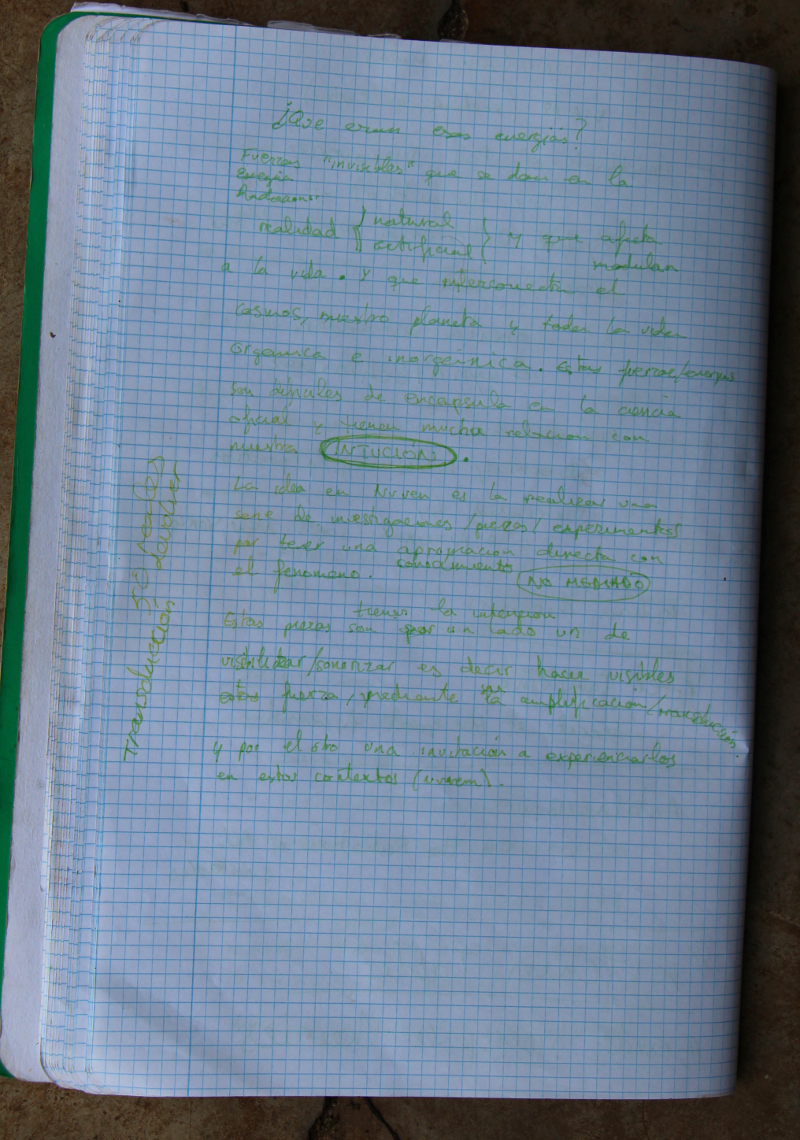 ¿Que eran esas energías?
Fuerzas "invisibles" que se dan en la
Energía
Radiacion
realidad { natural
artificial } y que afecta
modulan
a la vida. y que interconecta el
cosmos, nuestro planeta y toda la vida
organica e inorgánica. Estas fuerzas/energias
son dificiles de encapsula en la ciencia
oficial y tienen mucha relacion con
nuestra INTUCION.
La idea en Nuven es la realizar una
serie de investigaciones/piezas/experimentos
por tener una aproximación directa con
el fenomeno. conocimiento NO MEDIADO
tienen la intencion
Estas piezas son por un lado un de
visibilizar/sonorizar es decir hacer visibles
estas fuerza, mediante la amplificación/transducción.
y por el otro una invitación a experienciarlos
en estos contextos (nuvem).
Transducción de